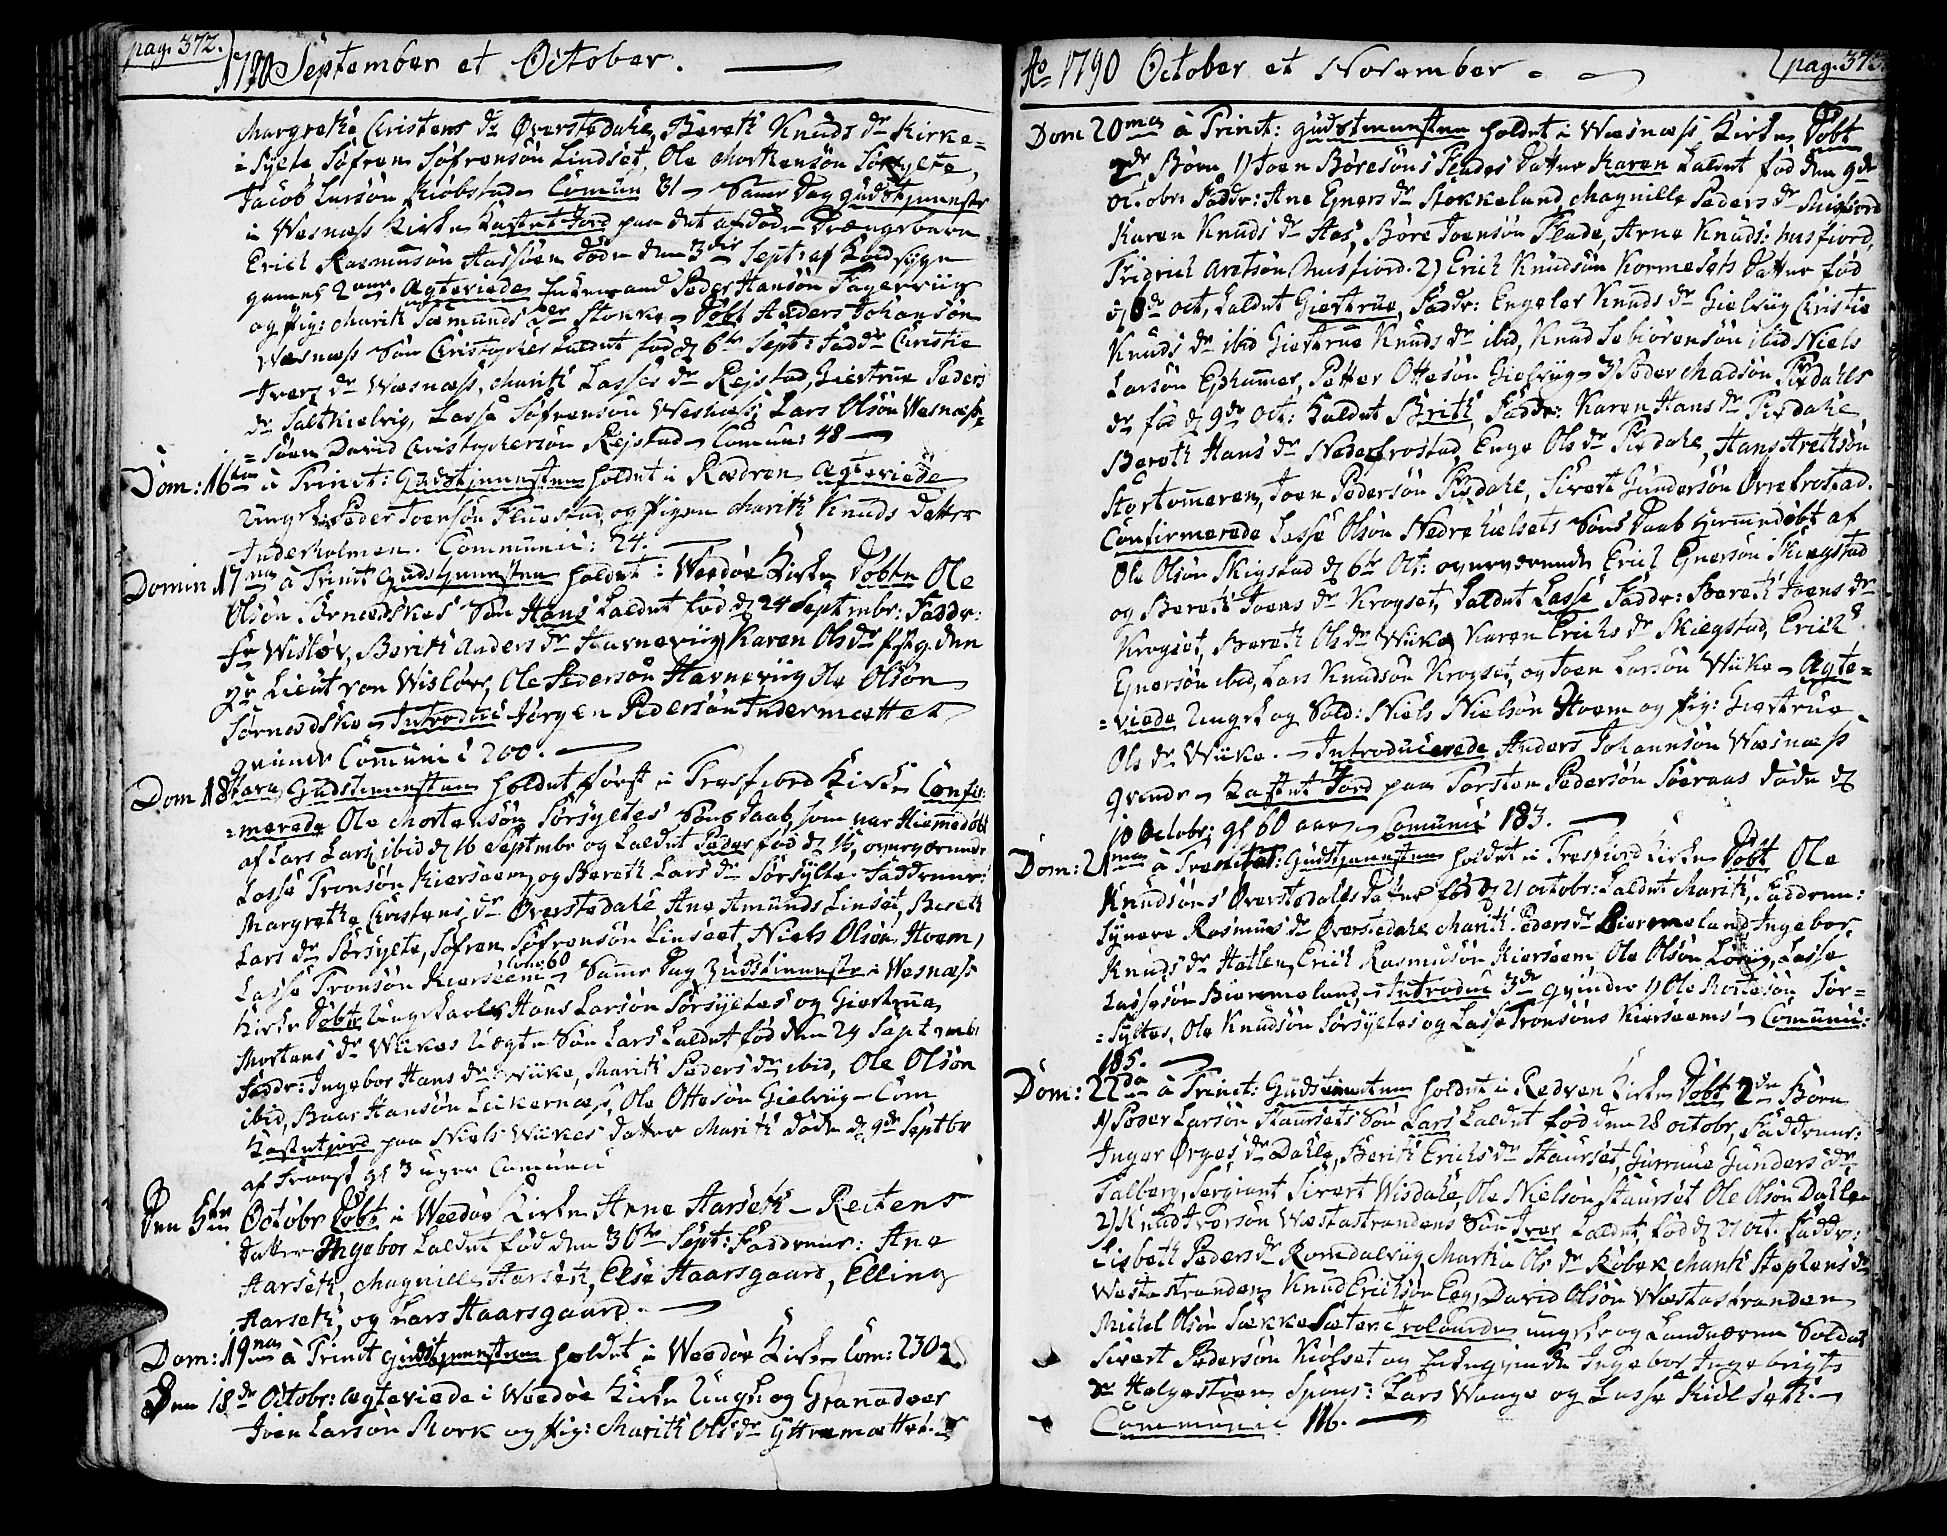 pag. 372.
1790 September et October.
Margrethe Christens dr Øverstedahl, Bereth Knuds dr Kirke=
=Sylte Søfren Søfrensøn Lindset, Ole Mortensøn Sørsylte,
Jacob Larsøn Kiøbstad Comun 31 Samme Dag gudstjeneste
i Wesnæss Kirke Kastet Jord paa det afdøde Drængebarn
Erich Rasmusøn døde den 3die Sept: af Koldsyge
gamel 2 aar. Ægteviede Enkemand Peder Hansøn Fagerviig
og Pig: Marith Sæmunds dr Stokke Døbt Anders Johansøn
Wæsnæss Søn Christopher kaldet fød d 6te Sept: Fadd: Christie
Ivers dr Wæsnæss, Marith Lasses dr Rejstad, Giertrue Peders
dr Saltkielvig, Lasse Søfrensøn Wesnæss, Lars Olsøn Wesnæss
=Søen David Christophersøn Rejstad Comun: 48
Dom: 16ten à Trinit: Gudstjenesten holdet i Rødven Ægteviede
Ungk: Peder Joensøn Fluestad og Pigen Marith Knuds Datter
Inderholmen. Communic: 24.
Domin 17ma à Trinit Gudstjenesten holdet i Weedøe Kirke Døbte Ole
Olsøn Sørnedskes Søn Hans kaldet fød d 24 Septembr: Fadd:
Fr Wisløv, Berith Anders dr Havneviig Karen Ols dr
Hr Lieut von Wisløv, Ole Pedersøn Havneviig Ole Olsøn
Sørnedske Introduc Jørgen Pedersøn Indermættet
qvinde Comunic 200.
Dom 18tava Gudstienesten holdet først i Tresfiord Kirke Confir=
=merede Ole Mortensøn Sørsyltes Søns Daab, som var Hiemedøbt
af Lars Lars ibid d 16 Septembr og kaldet Peder fød d 15, overværende
Lasse Tronsøn Kierseem og Bereth Lars dr Sørsylte Fadderne:
Margrethe Christens dr Øverstedahl Ane Amunds Linset, Bereth
Lars dr Sørsylte, Søfren Søfrensøn Linseet, Niels Olsøn Hoem,
Lasse Tronsøn Kierseem Come 60 Samme Dag gudstieneste i Wesnæss
Kirke Døbte Ungkarl Hans Larsøn Sørsyltes og Giertrue
Mortens dr Wiikes Uægte Søn Lars kaldet fød den 29 Septembr
Fadd: Ingebor Hans dr Wiike, Marith Peders dr ibid, Ole Olsøn
ibid, Baar Hansøn Leikernæs, Ole Ottesøn Gielviig Com
Kastet jord paa Niels Wiikes datter Marith døde d 9de Septbr
af gl 3 uger Comunic
Den 5te Octobr Døbt i Weedøe Kirke Arne Harseth Reitens
datter Ingebor kaldet fød den 30te Sept: Fadderne: Ane
Harseth, Magnille Harseth, Else Haarsgaard, Elling
Harseth, og Lars Haarsgaard.
Dom: 19na à Trinit gudstjenesten holdet i Weedøe Kirke Com: 230
Den 18de Octobr: ægteviede i Weedøe Kirke Ungk: og Granadeer
Joen Larsøn Mork og Pig: Marith Ols dr Yttremættet.
pag. 373
Ao 1790 October et November
Dom 20ma à Trinit: gudstienesten holdet i Wæsnæss Kirke Døbt
2de Børn 1) Joen Børesøns Flades Datter Karen kaldet fød den 9de
Octobr: Faddr: Ane Ejners dr Stokkeland, Magnille Peders dr Misfiord
Karen Knuds dr Aas, Børe Joensøn Flade, Arne Knuds: Misfiord,
Fridrich Aretsøn Misfiord. 2) Erich Knudsøn Kormesets Datter fød
d 8de Oct, kaldet Giertrue, Faddr: Engeler Knuds dr Gielviig Christie
Knuds dr ibid Giertrue Knuds dr ibid, Knud Sebiørensøn ibid Niels
Larsøn Ephummer, Petter Ottesøn Gielviig 3) Peder Madsøn Pirdahls
dr fød d 9de Oct: kaldet Brith, Faddr: Karen Hans dr Pirdahle
Bereth Hans dr Nederfrostad, Enge Ols dr Pirdahle, Hans Arethsøn
Stortomeren, Joen Pedersøn Pirdahle, Sivert Gundersøn Øvrefrostad.
Confirmerede Lasse Olsøn Nedre Kielsets Søns Daab hiemmedøbt af
Ole Olsøn Skigstad d 6te Oct: overværende Erich Ejnersøn Skiegstad
og Bereth Joens dr Krogset, kaldet Lasse Faddr: Bereth Joens dr
Krogset, Bereth Ols dr Wiike, Karen Erichs dr Skiegstad, Erich
Ejnersøn ibid, Lars Knudsøn Krogset, og Joen Larsøn Wiike Ægte=
=viede Ungk: og Sold: Niels Nielsøn Hoem og Pig: Giertrue
Ols dr Wiike. Introducerede Anders Johannsøn Wæsnæss
qvinde Kastet Jord paa Torsten Pedersøn døde d
10 Octobr: gl 60 aar Comunic 183.
Dom: 21ma à Trinitat: Gudstjenesten holdet i Tresfiord Kirke Døbt Ole
Knudsøns Øverstedales datter fød d 21 octobr: kaldet Marith, Faddrene:
Synere Rasmus dr Øverstedale Marith Peders dr Biermeland Ingebor
Knuds dr Hatlen, Erich Rasmusøn Kierseem Ole Olsøn Løvig, Lasse
Lassesøn Biermeland Introduc 3de qvinder 1) Ole Mortesøn Sør=
=Syltes, Ole Knudsøn Sørsyltes og Lasse Tronsøns Kierseems Comunic:
185.
Dom: 22da à Trinit: Gudstienesten holdet i Rødven Kirke Døbt 2de Børn
1) Peder Larsøn Staursets Søn Lars kaldet fød den 28 octobr, Faddrene:
Inger Ørges dr Dahle, Berith Erichs dr Staurset, Gurrue Gunders dr
Talberg, Sergiant Sivert Wisdahl, Ole Nielsøn Staurset Ole Olsøn Dahle
2) Knud Iversøn Wæstestrandens Søn Iver kaldet, fød d 27 oct. Faddr:
Lisbeth Peders dr Romdalsviig, Martha Ols dr Købek Marith Stephens dr
Westestranden Knud Erichsøn Eeg, David Olsøn Wæstestranden
Michel Olsøn Sækkesæter Trolovede ungk: og Landværn Soldat
Sivert Pedersøn Kiølset og Enkeqvinde Ingebor Ingebrigts
dr Helgestøen Spons: Lars Waage og Lasse Kidlseth.
Communic 116.